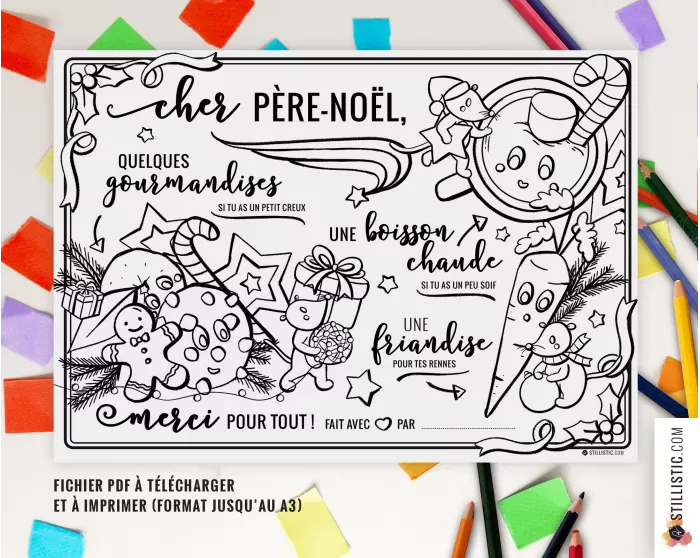 cher PÈRE-NOËL,
QUELQUES
gourmandises
SI TU AS UN PETIT CREUX
UNE boisson
chaude
SI TU AS UN PEU SOIF
UNE
friandise
POUR TES RENNES
merci POUR TOUT ! FAIT AVEC PAR
STILLISTIC.COM
FICHIER PDF À TÉLÉCHARGER
ET À IMPRIMER (FORMAT JUSQU'AU A3)
STILLISTIC.COM